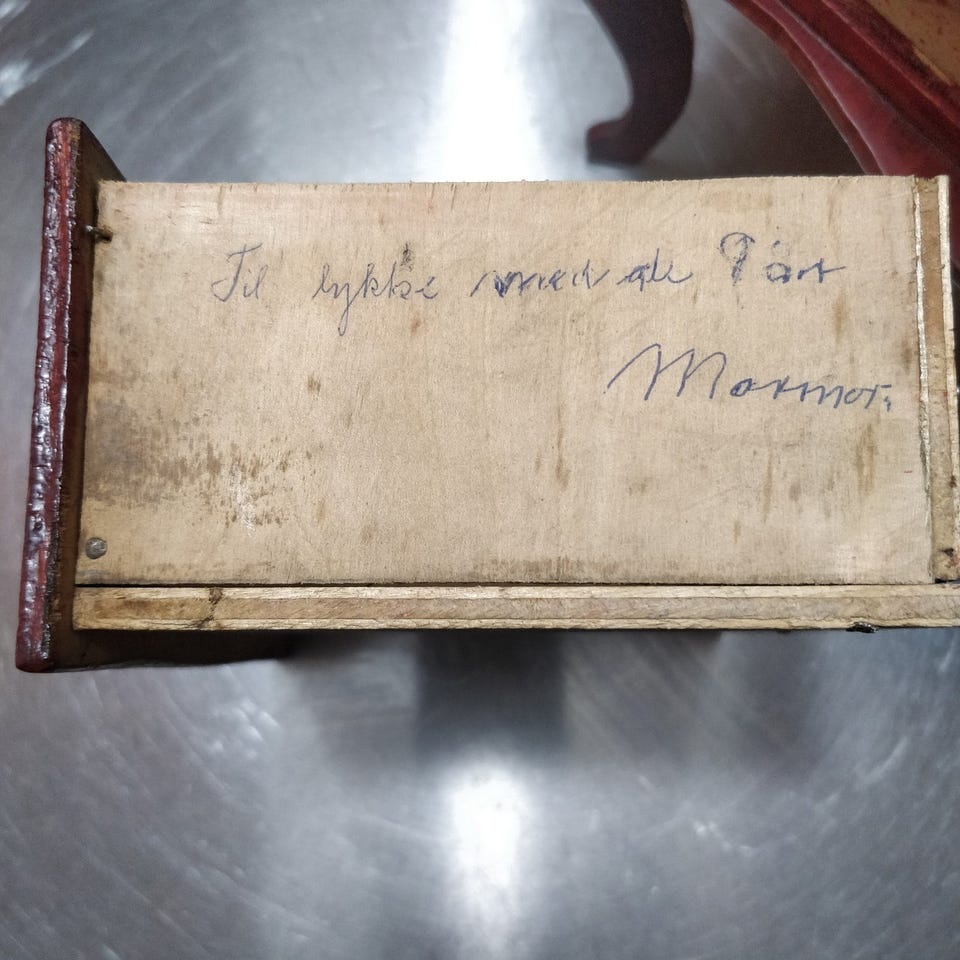 Til lykke med de 9 år
Marmor.